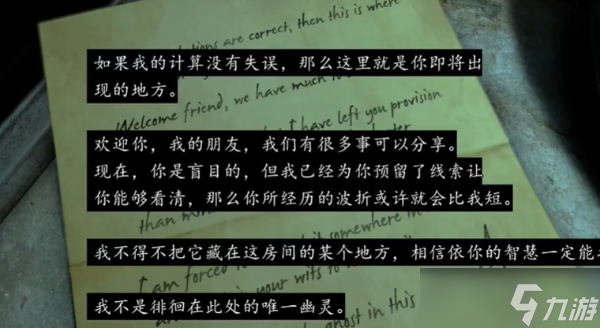 ations are correct, then this is where
如果我的计算没有失误，那么这里就是你即将出
现的地方。
Welcome friend, we have much to
欢迎你，我的朋友，我们有很多事可以分享。
have left you provision
现在，你是盲目的，但我已经为你预留了线索让
你能够看清，那么你所经历的波折或许就会比我短。
than
it somewhere in
我不得不把它藏在这房间的某个地方，相信依你的智慧一定能
I am forced
in your wits to
我不是徘徊在此处的唯一幽灵。
ghost in this
九游